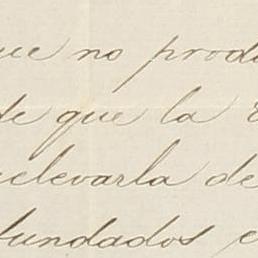 que no prod
de que la
relevarla de
fundados e